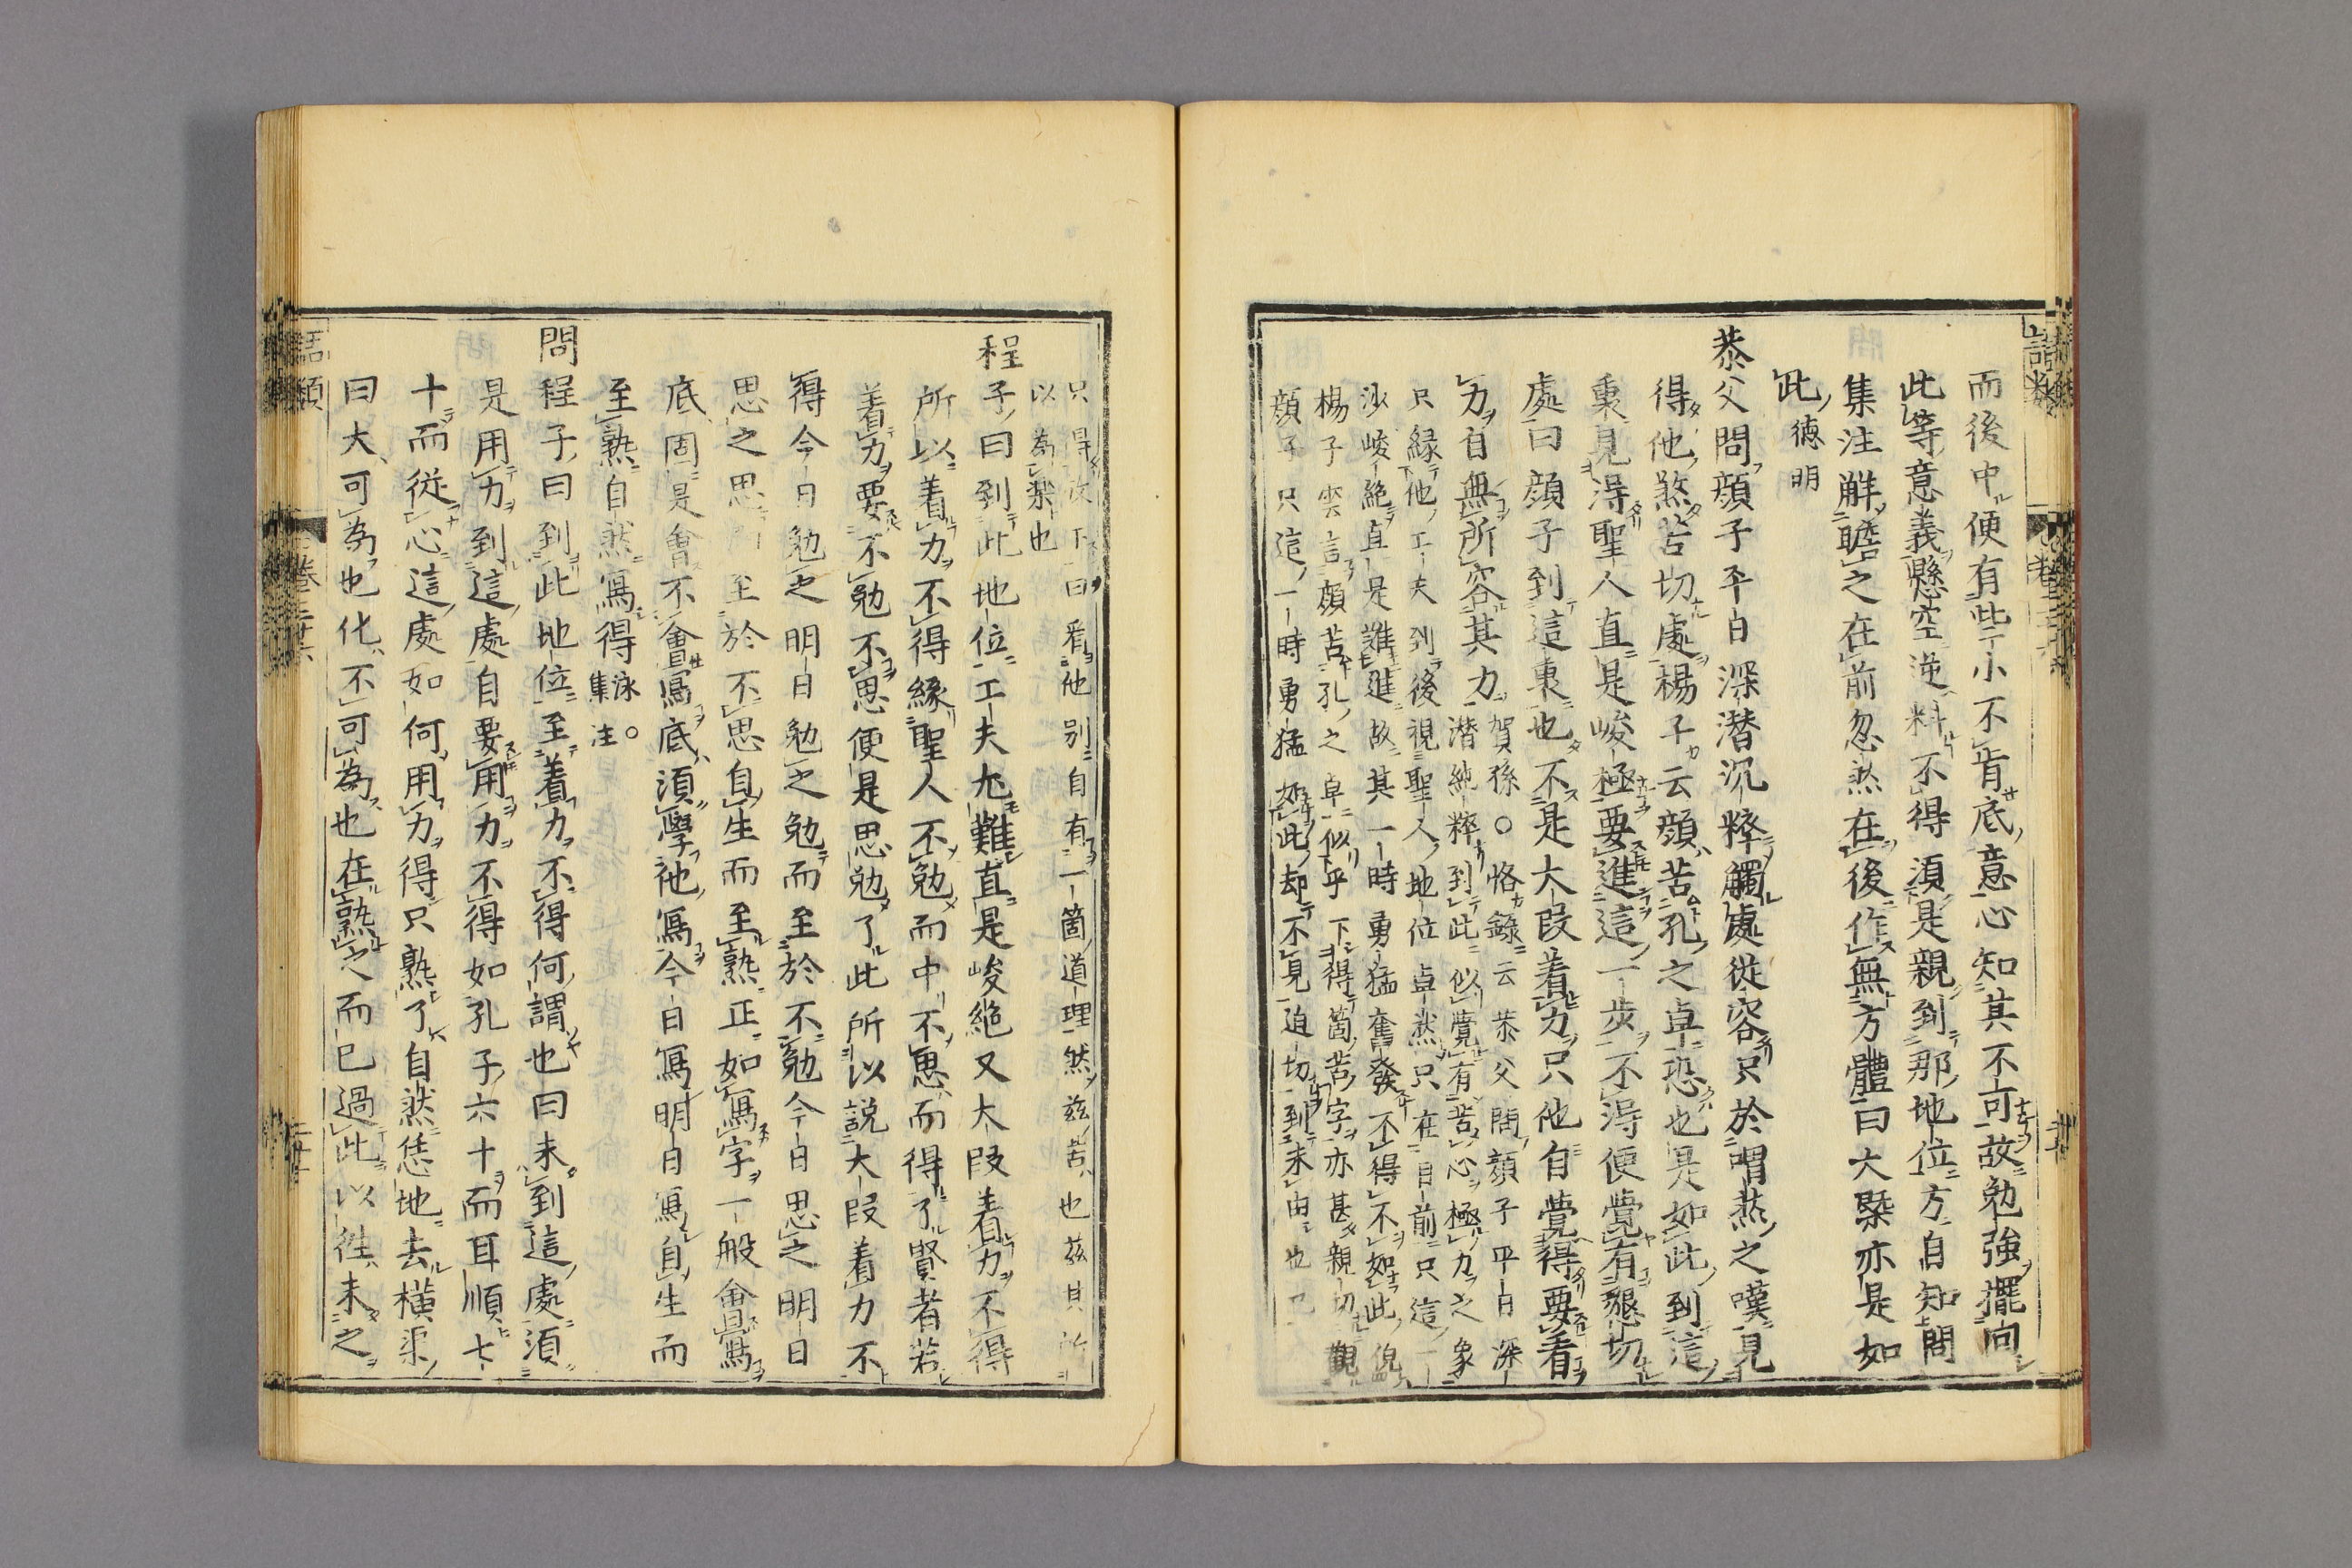 而後中便有些小不肯底意心知其不可故勉強擺向
此等意義懸空逆料不得須是親到那地位方自知問
集注解瞻之在前忽然在後作無方體曰大槩亦是如
此德明
恭父問顔子平日深潛沉粹觸處從容只於喟然之嘆見
得他煞苦切處楊子云顔苦孔之卓恐也是如此到這
裏見得聖人直是峻極要進這一歩不得便覺有懇切
處曰顔子到這裏也不是大段着力只他自覺得要着
力自無所容其力賀孫〇恪錄云恭父問顔子平日深
潛純粹到此似覺有苦心極力之象
只縁他工夫到後視聖人地位卓然只在目前只這一
歩峻絶直是難進故其一時勇猛奮發不得不如此
楊子雲言顔苦孔之卓似乎下得箇苦字亦甚親切觀
顔子只這一時勇猛如此却不見迫切到末由也已
只得放下曰看他別自有一箇道理然茲苦也茲其所
以為樂也
程子曰到此地位工夫尤難直是峻絶又大段着力不得
所以着力不得縁聖人不勉而中不思而得了賢者若
着力要不勉不思便是思勉了此所以説大段着力不
得今日勉之明日勉之勉而至於不勉今日思之明日
思之思而至於不思自生而至熟正如寫字一般會寫
底固是會不會寫底須學他寫今日寫明日寫自生而
至熟自然寫得泳〇集注
問程子曰到此地位至着力不得何謂也曰未到這處須
是用力到這處自要用力不得如孔子六十而耳順七
十而從心這處如何用力得只熟了自然恁地去橫渠
曰大可為也化不可為也在熟之而已過此以徃未之
語類
卷三十六